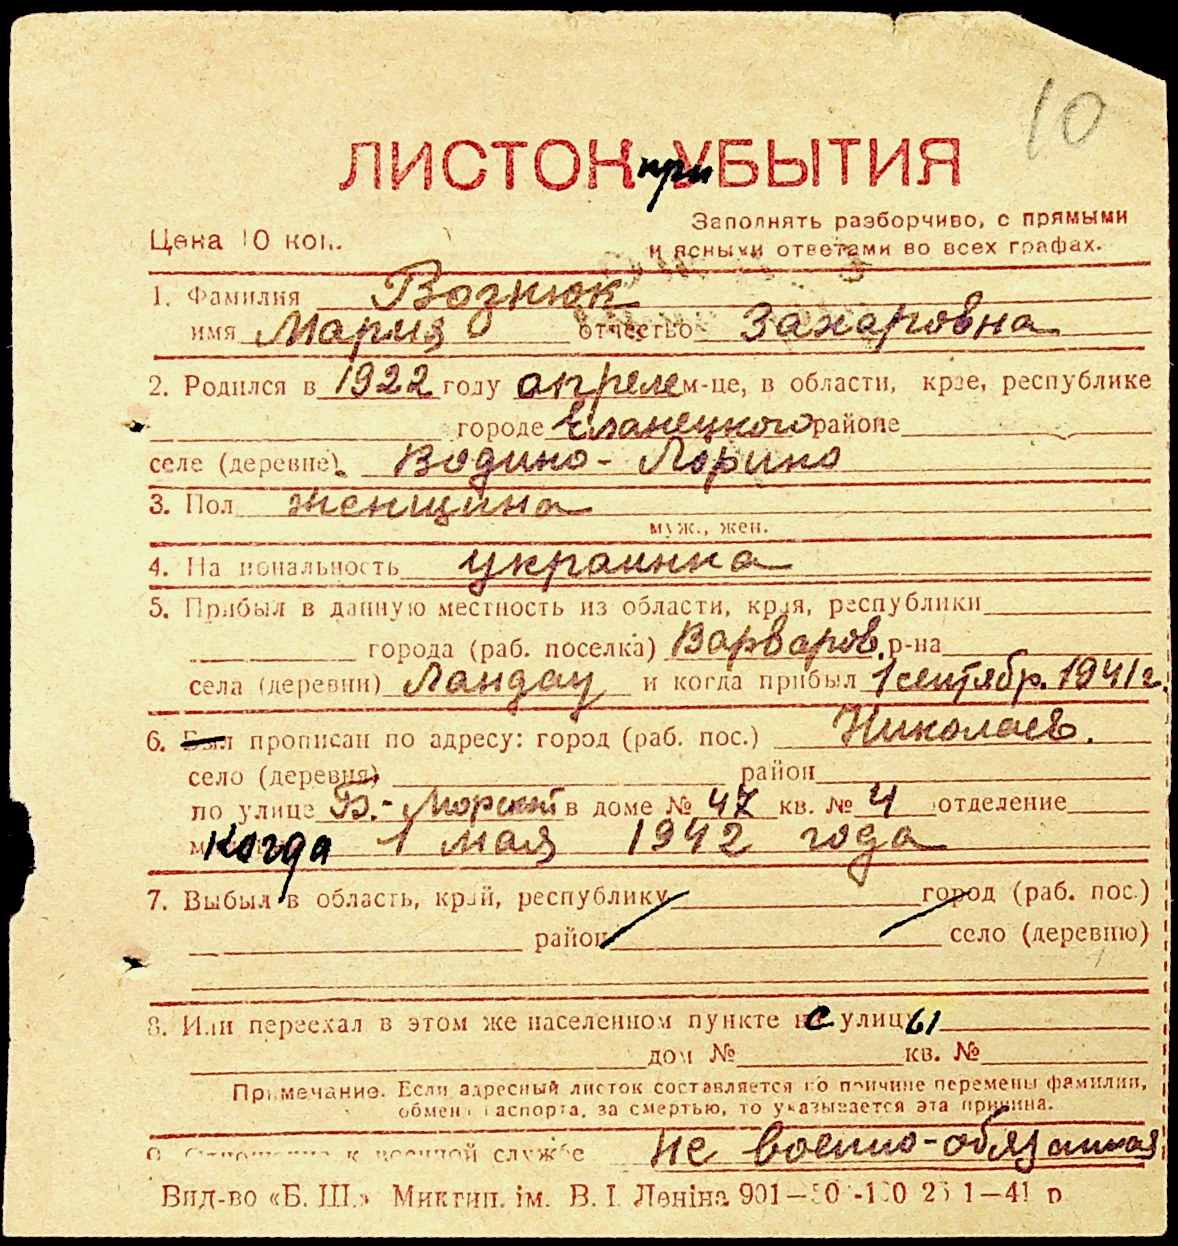 10
ЛИСТОК при УБЫТИЯ
Заполнять разборчиво, с прямыми
Цена 10 коп.
и ясными ответами во всех графах.
1. Фамилия Вознюк
имя Мария отчество Захаровна
2. Родился в 1922 году апреле м-це, в области, крае, республике
городе Еланецкого районе
селе (деревне) Водино-Лорино
3. Пол женщина
муж., жен.
4. Национальность украинка
5. Прибыл в данную местность из области, края, республики
города (раб. поселка) Варваров. р-на
села (деревни) Ландау и когда прибыл 1 сентябр. 1941 г.
6. Был прописан по адресу: город (раб. пос.) Николаев.
село (деревня) район
по улице Б.-Морской в доме № 47 кв. № 4 отделение
Когда 1 мая 1942 года
7. Выбыл в область, край, республику город (раб. пос.)
район село (деревню)
8. Или переехал в этом же населенном пункте с улицы
дом № кв. №
Примечание. Если адресный листок составляется по причине перемены фамилии,
обмена паспорта, за смертью, то указывается эта причина.
9. Отношение к военной службе не военно-обязанная
Вид-во «Б. Ш.» Миктип. ім. В. І. Леніна 901— 1—41 р